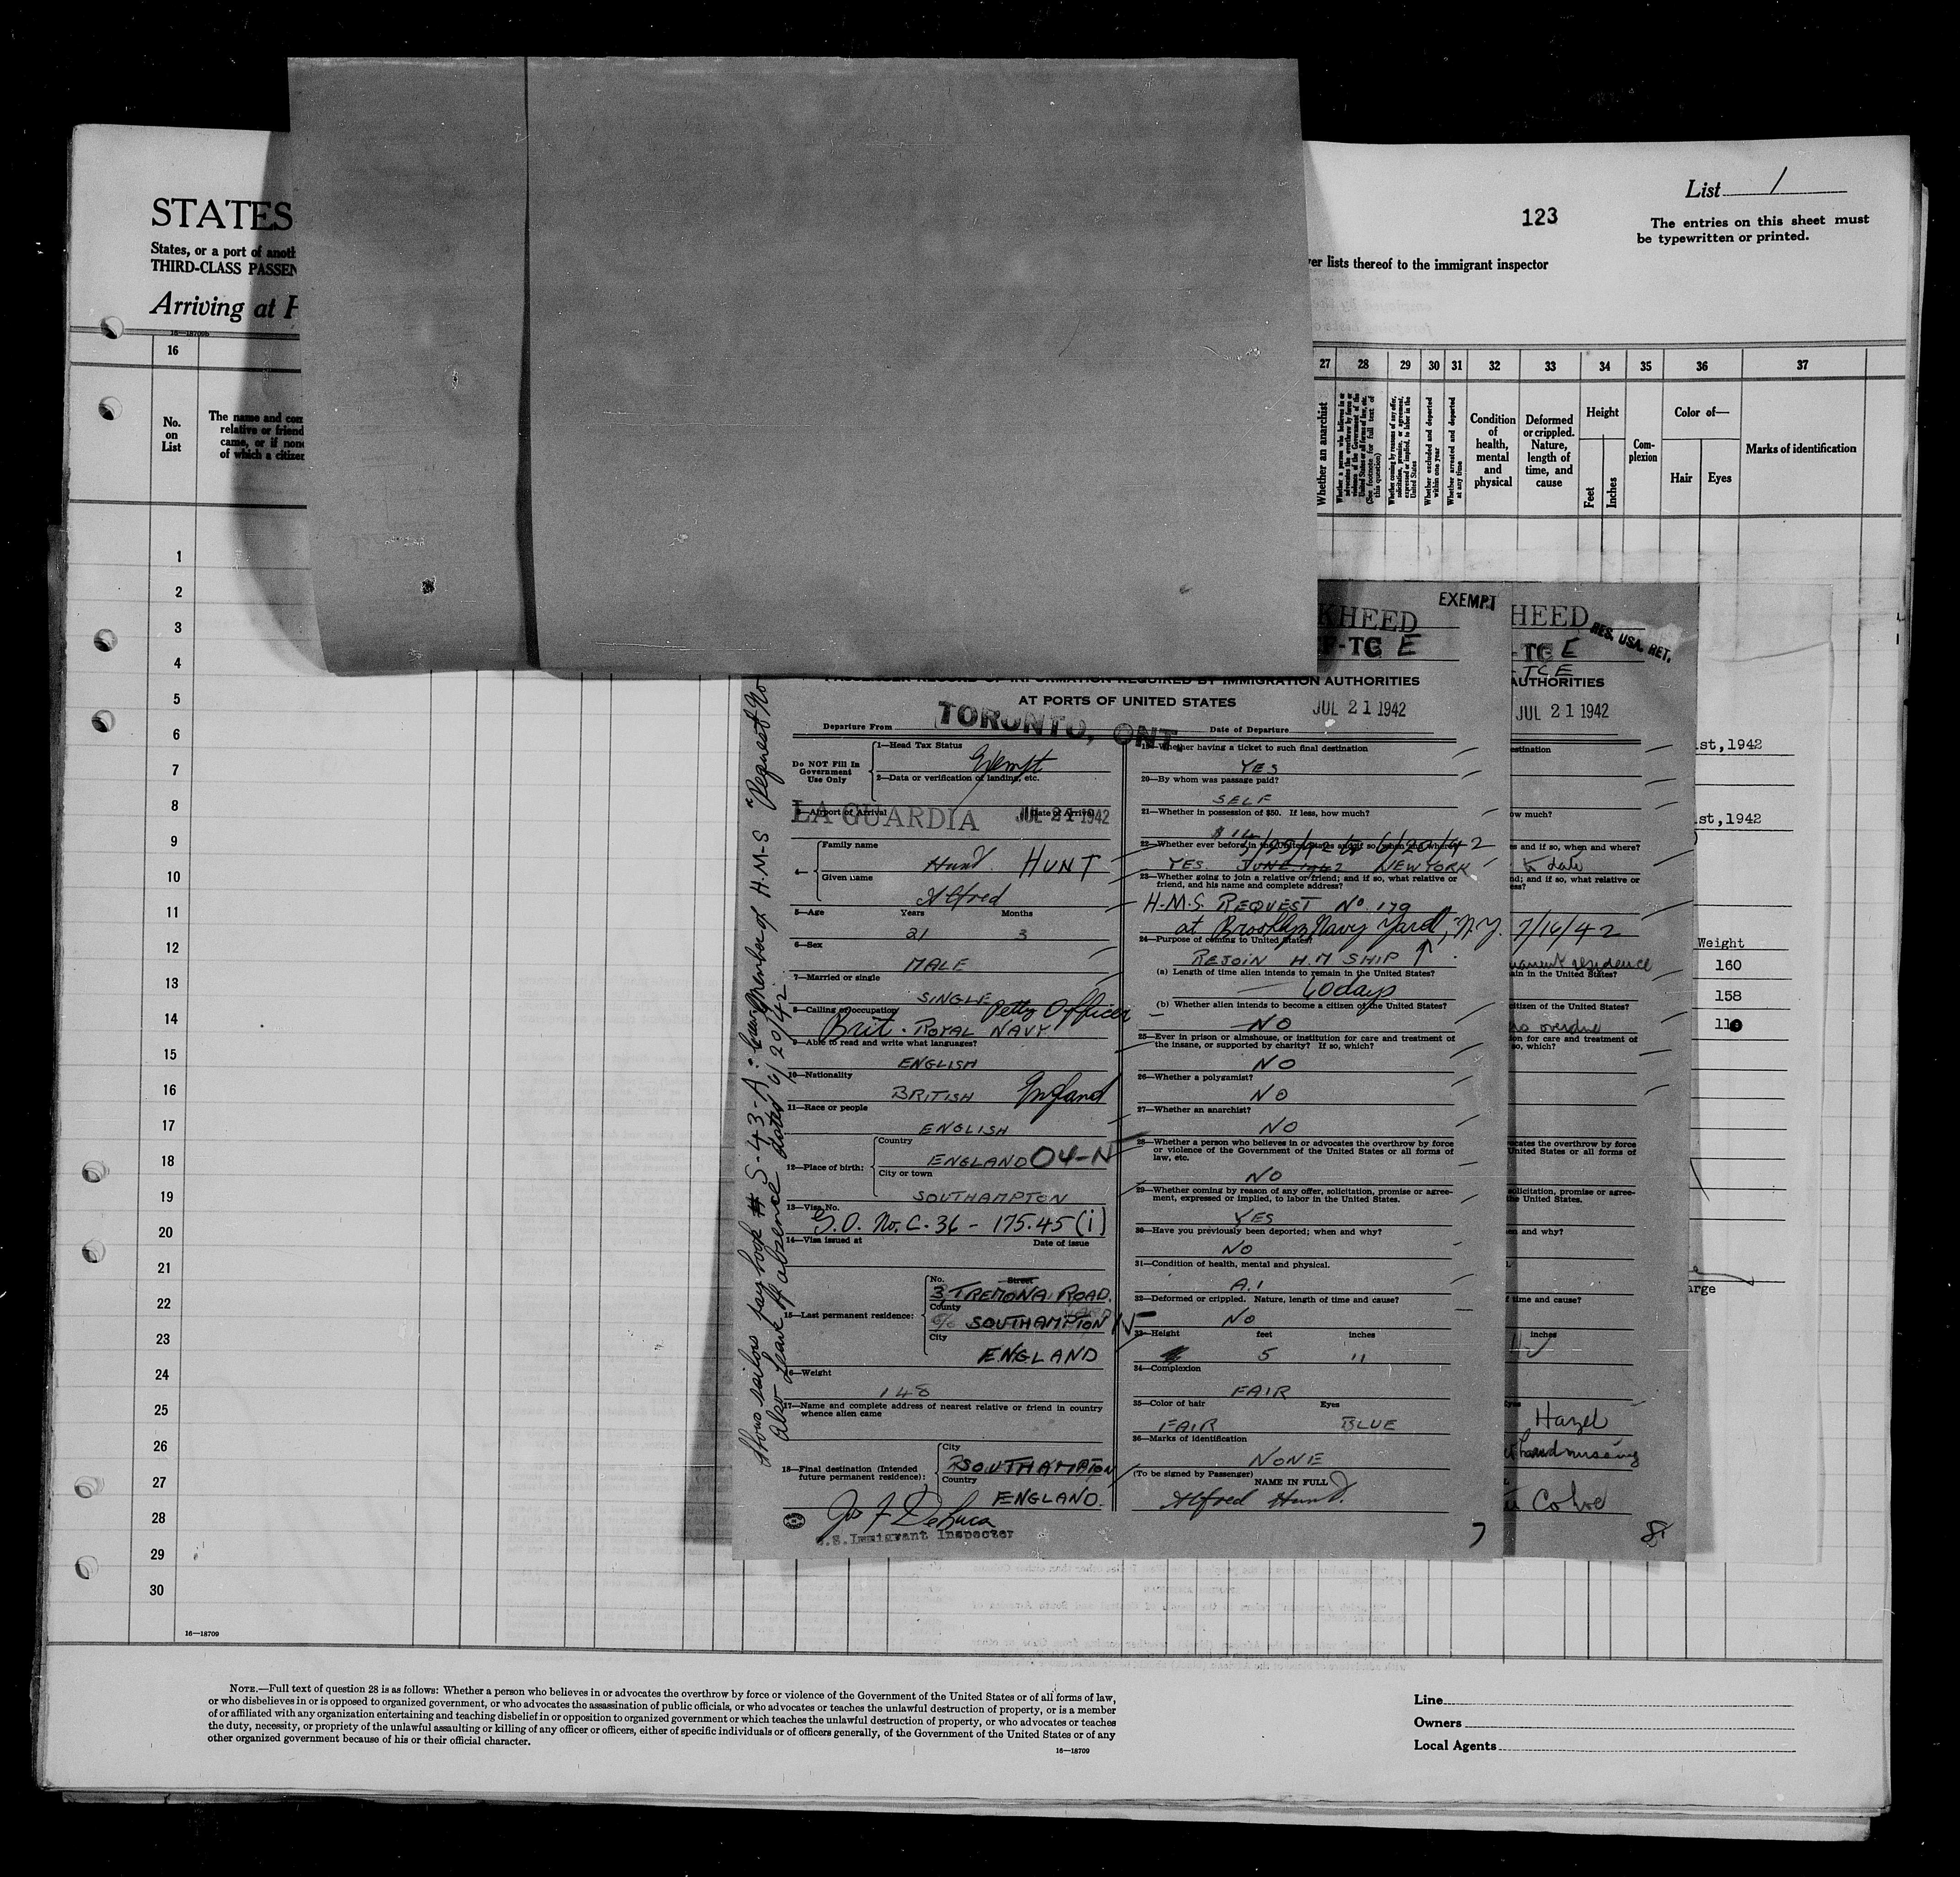 STATES
States, or a port of anoth
THIRD-CLASS PASSEN
Arriving at P
16—18709b
123
List 1
The entries on this sheet must
be typewritten or printed.
ver lists thereof to the immigrant inspector
16
27 28 29 30 31 32 33 34 35 36 37
No.
on
List
The name and com
relative or friend
came, or if none
of which a citizen
Whether an anarchist
Whether a person who believes in or
advocates the overthrow by force or
violence of the Government of the
United States or all forms of law, etc.
(See footnote for full text of
this question)
Whether coming by reasons of any offer,
solicitation, promise, or agreement,
expressed or implied, to labor in the
United States
Whether excluded and deported
within one year
Whether arrested and deported
at any time
Condition
of
health,
mental
and
physical
Deformed
or crippled.
Nature,
length of
time, and
cause
Height
Feet
Inches
Com-
plexion
Color of—
Hair Eyes
Marks of identification
1
2
3
4
5
6
7
8
9
10
11
12
13
14
15
16
17
18
19
20
21
22
23
24
25
26
27
28
29
30
KHEED
EXEMPT
F-TC E
PASSENGER RECORD OF INFORMATION REQUIRED BY IMMIGRATION AUTHORITIES
AT PORTS OF UNITED STATES
JUL 21 1942
Departure From TORONTO, ONT. Date of Departure
Do NOT Fill In
Government
Use Only
1—Head Tax Status
Exempt
2—Data or verification of landing, etc.
3—Airport of Arrival Date of Arrival
LA GUARDIA JUL 21 1942
4—
Family name
Hunt HUNT
Given name
Alfred
5—Age Years Months
21 3
6—Sex
MALE
7—Married or single
SINGLE
8—Calling or occupation Petty Officer
Brit. ROYAL NAVY
9—Able to read and write what languages?
ENGLISH
10—Nationality
BRITISH England
11—Race or people
ENGLISH
12—Place of birth:
Country
ENGLAND 04-N
City or town
SOUTHAMPTON
13—Visa No.
G.O. No. C-36 - 175.45(i)
14—Visa issued at Date of issue
15—Last permanent residence:
No. Street
3, TREMONA ROAD.
County
SOUTHAMPTON
City
ENGLAND
16—Weight
148
17—Name and complete address of nearest relative or friend in country
whence alien came
18—Final destination (Intended
future permanent residence):
City
SOUTHAMPTON
Country
ENGLAND.
Jos F DeLuca
U.S. Immigrant Inspector
Shows sailors pay book # S-43-A: member of H.M.S "Request No
Also leave of absence dated 6/20/42
19—Whether having a ticket to such final destination
YES
20—By whom was passage paid?
SELF
21—Whether in possession of $50. If less, how much?
$14
22—Whether ever before in the United States and if so, when and where?
YES JUNE 1942 NEW YORK
23—Whether going to join a relative or friend; and if so, what relative or
friend, and his name and complete address?
H.M.S. REQUEST No. 179
at Brooklyn Navy Yard, N.Y.
24—Purpose of coming to United States?
REJOIN H.M SHIP
(a) Length of time alien intends to remain in the United States?
60 days
(b) Whether alien intends to become a citizen of the United States?
NO
25—Ever in prison or almshouse, or institution for care and treatment of
the insane, or supported by charity? If so, which?
NO
26—Whether a polygamist?
NO
27—Whether an anarchist?
NO
28—Whether a person who believes in or advocates the overthrow by force
or violence of the Government of the United States or all forms of
law, etc.
NO
29—Whether coming by reason of any offer, solicitation, promise or agree-
ment, expressed or implied, to labor in the United States.
YES
30—Have you previously been deported; when and why?
NO
31—Condition of health, mental and physical.
A.1
32—Deformed or crippled. Nature, length of time and cause?
NO
33—Height feet inches
5 11
34—Complexion
FAIR
35—Color of hair Eyes
FAIR BLUE
36—Marks of identification
NONE
(To be signed by Passenger) NAME IN FULL
Alfred Hunt.
7
HEED
RES. USA. RET.
-TC E
-TCE
AUTHORITIES
JUL 21 1942
estination
ow much?
es and if so, when and where?
to date
nd; and if so, what relative or
ess?
7/16/42
manent residence
ain in the United States?
citizen of the United States?
no overdue
ion for care and treatment of
so, which?
ocates the overthrow by force
United States or all forms of
solicitation, promise or agree-
the United States.
en and why?
f time and cause?
inches
11
Eyes
Hazel
hand missing
Cohe
8
1st,1942
1st,1942
Weight
160
158
110
arge
16—18709
NOTE.—Full text of question 28 is as follows: Whether a person who believes in or advocates the overthrow by force or violence of the Government of the United States or of all forms of law,
or who disbelieves in or is opposed to organized government, or who advocates the assassination of public officials, or who advocates or teaches the unlawful destruction of property, or is a member
of or affiliated with any organization entertaining and teaching disbelief in or opposition to organized government or which teaches the unlawful destruction of property, or who advocates or teaches
the duty, necessity, or propriety of the unlawful assaulting or killing of any officer or officers, either of specific individuals or of officers generally, of the Government of the United States or of any
other organized government because of his or their official character.
16—18709
Line
Owners
Local Agents